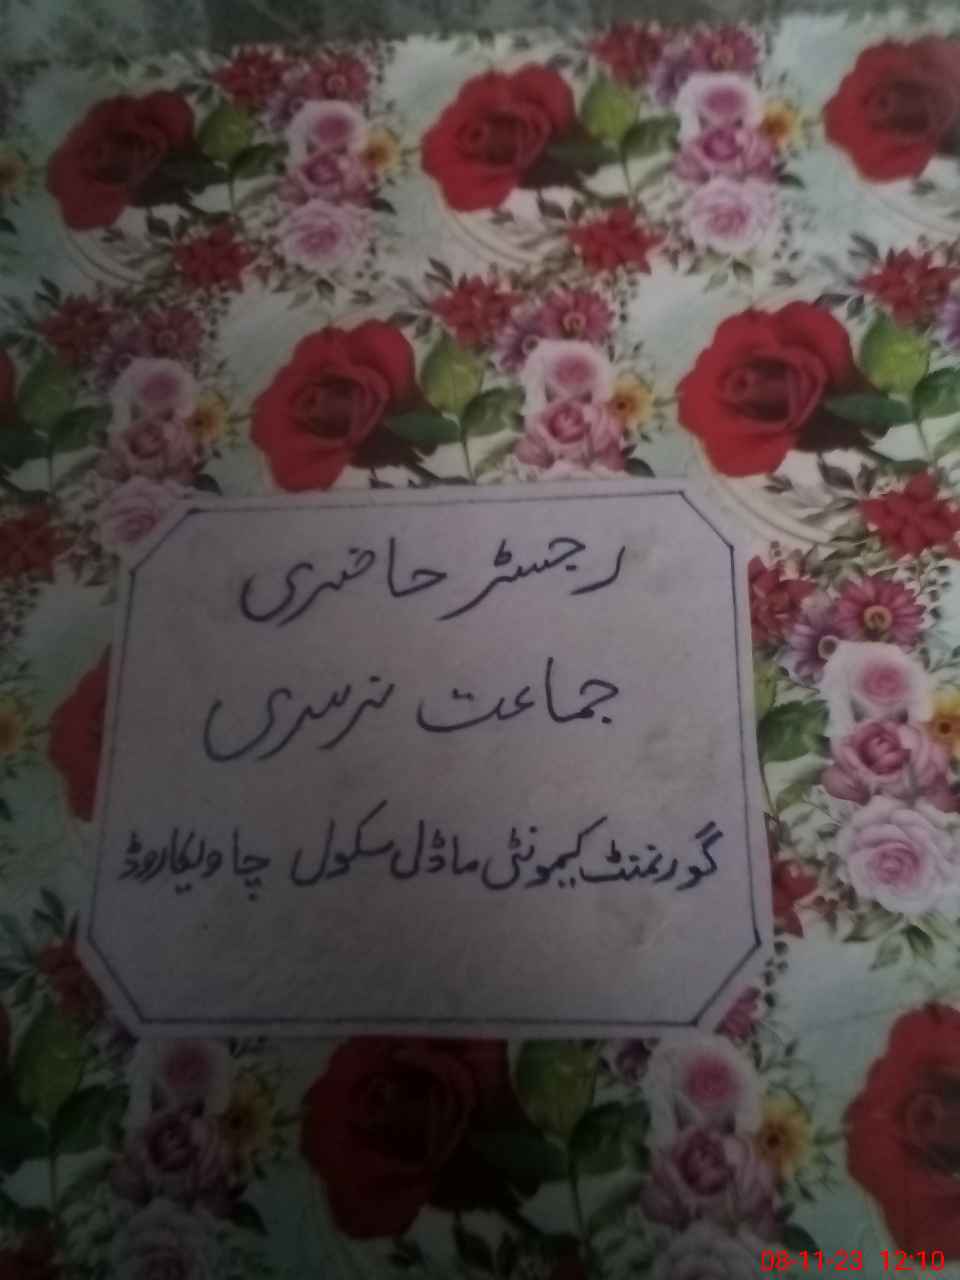 رجسٹر حاضری
جماعت نرسری
گورنمنٹ کیمونٹی ماڈل سکول چاہ ویکا روڈ
08-11-23 12:10